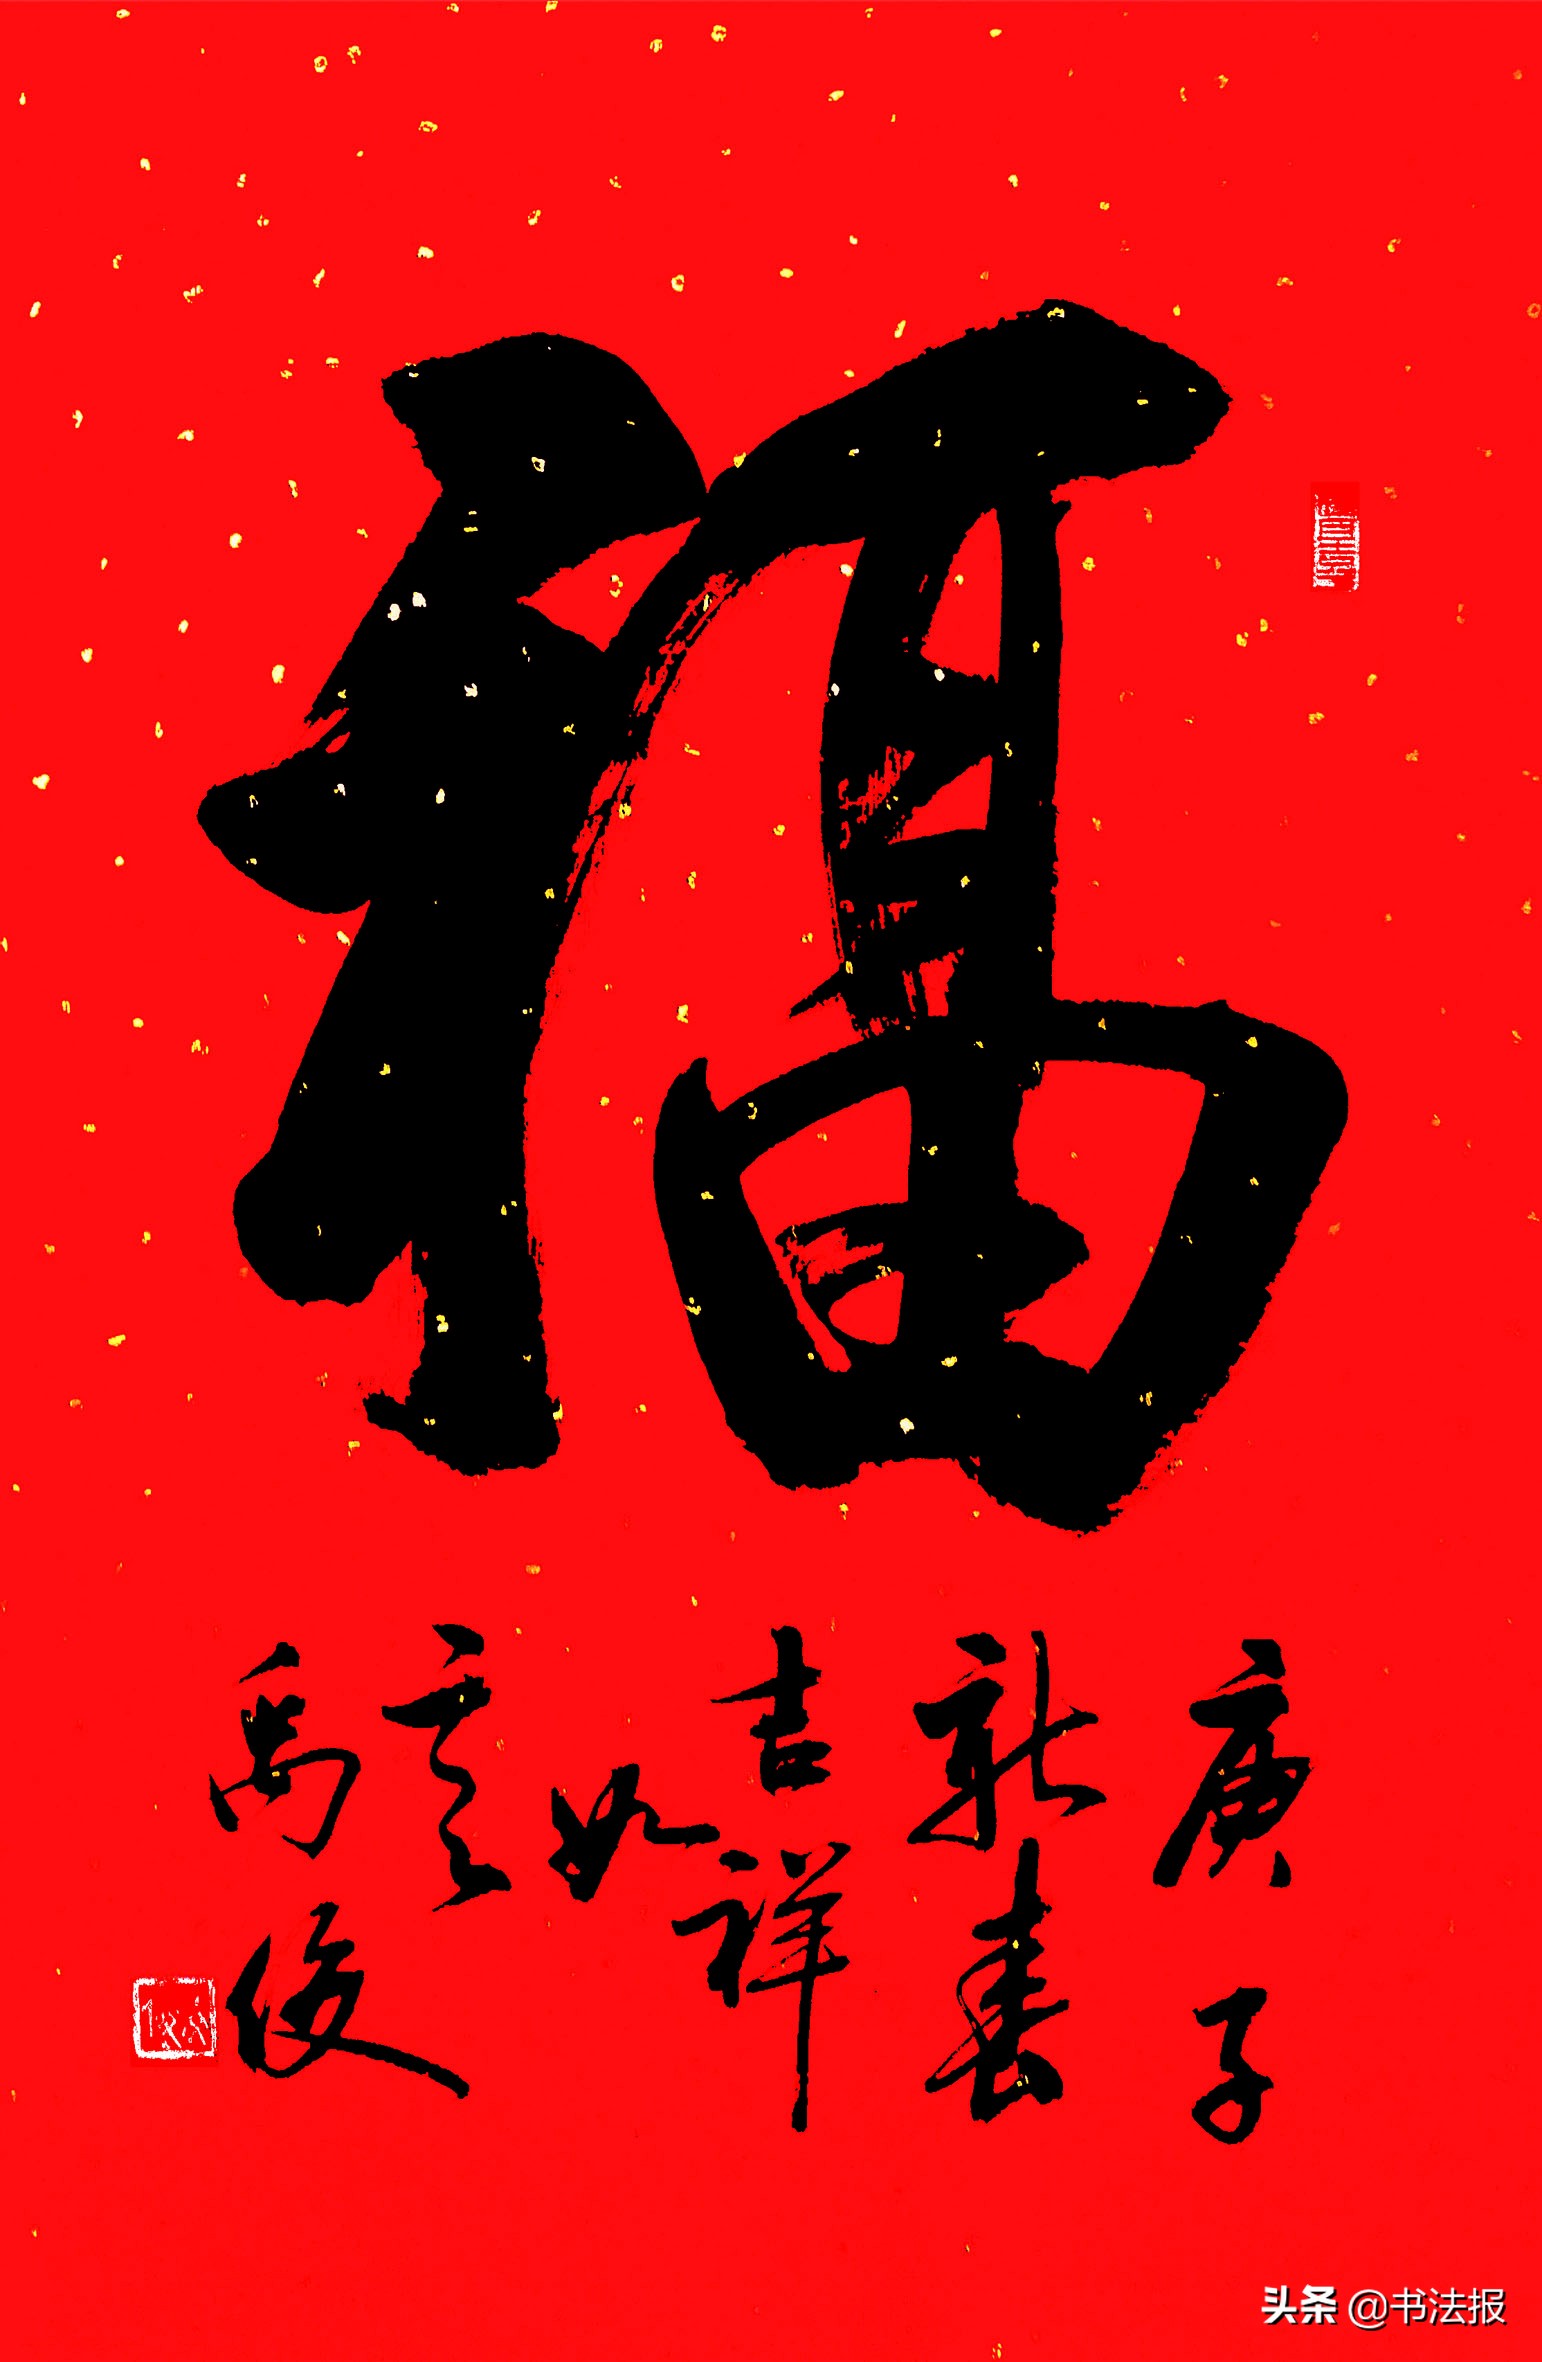 福
庚子
新春
吉祥
如
意
禹俊
头条 @书法报